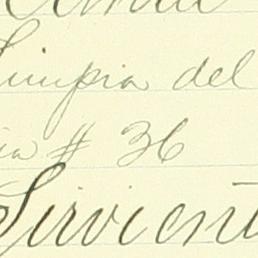 Limpia del
ia # 36
Sirvient